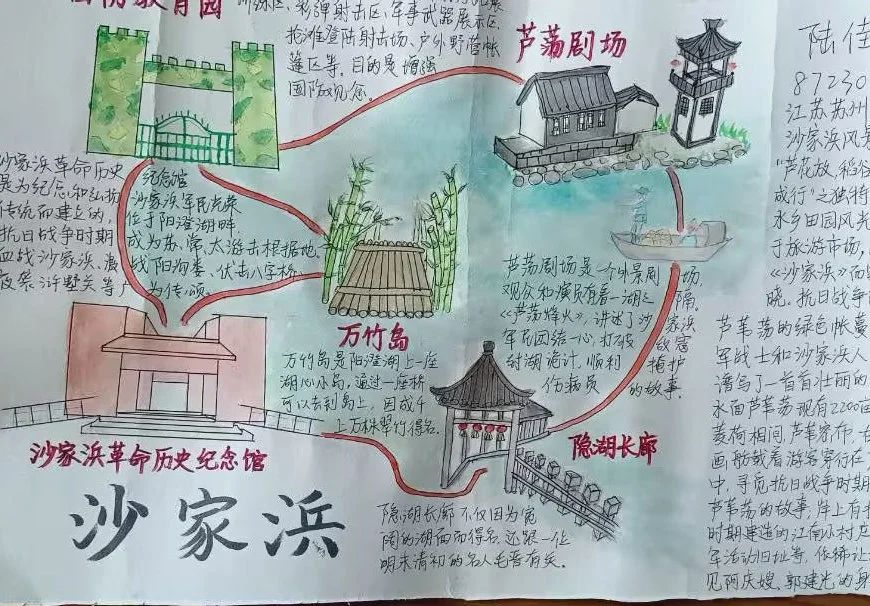 国防教育园
训练区、彩弹射击区、军事武器展示区、
抢滩登陆射击场、户外野营帐
篷区等。目的是增强
国防观念。
芦荡剧场
陆佳
87230
江苏苏州
沙家浜风景
"芦花放,稻谷
成行"之独特
水乡田园风光
于旅游市场,
《沙家浜》而
晓。抗日战争
芦苇荡的绿色帐蔓
军战士和沙家浜人
谱写了一首首壮丽的
水面芦苇荡现有2200亩
菱荷相间,芦苇密布,
画舫载着游客穿行在
中,寻觅抗日战争时期
芦苇荡的故事。岸上有
时期建造的江南小村庄
军活动旧址等,依稀让
见阿庆嫂、郭建光的身
沙家浜革命历史
是为纪念和弘扬
传统而建立的,
抗日战争时期
血战沙家浜、激
夜袭浒墅关等广
纪念馆
沙家浜军民光荣
位于阳澄湖畔,
成为苏、常、太游击根据地。
战阳沟娄、伏击八字桥、
为传颂。
万竹岛
万竹岛是阳澄湖上一座
湖心小岛,通过一座桥
可以去到岛上,因成千
上万株翠竹得名。
芦荡剧场是一个外景剧场,
观众和演员隔着一湖之隔。
《芦荡烽火》,讲述了沙家浜
军民团结一心,打破敌寇
封湖诡计,顺利掩护
伤病员的故事。
沙家浜革命历史纪念馆
隐湖长廊
隐湖长廊不仅因为宽
阔的湖面而得名,还跟一位
明末清初的名人毛晋有关。
沙家浜